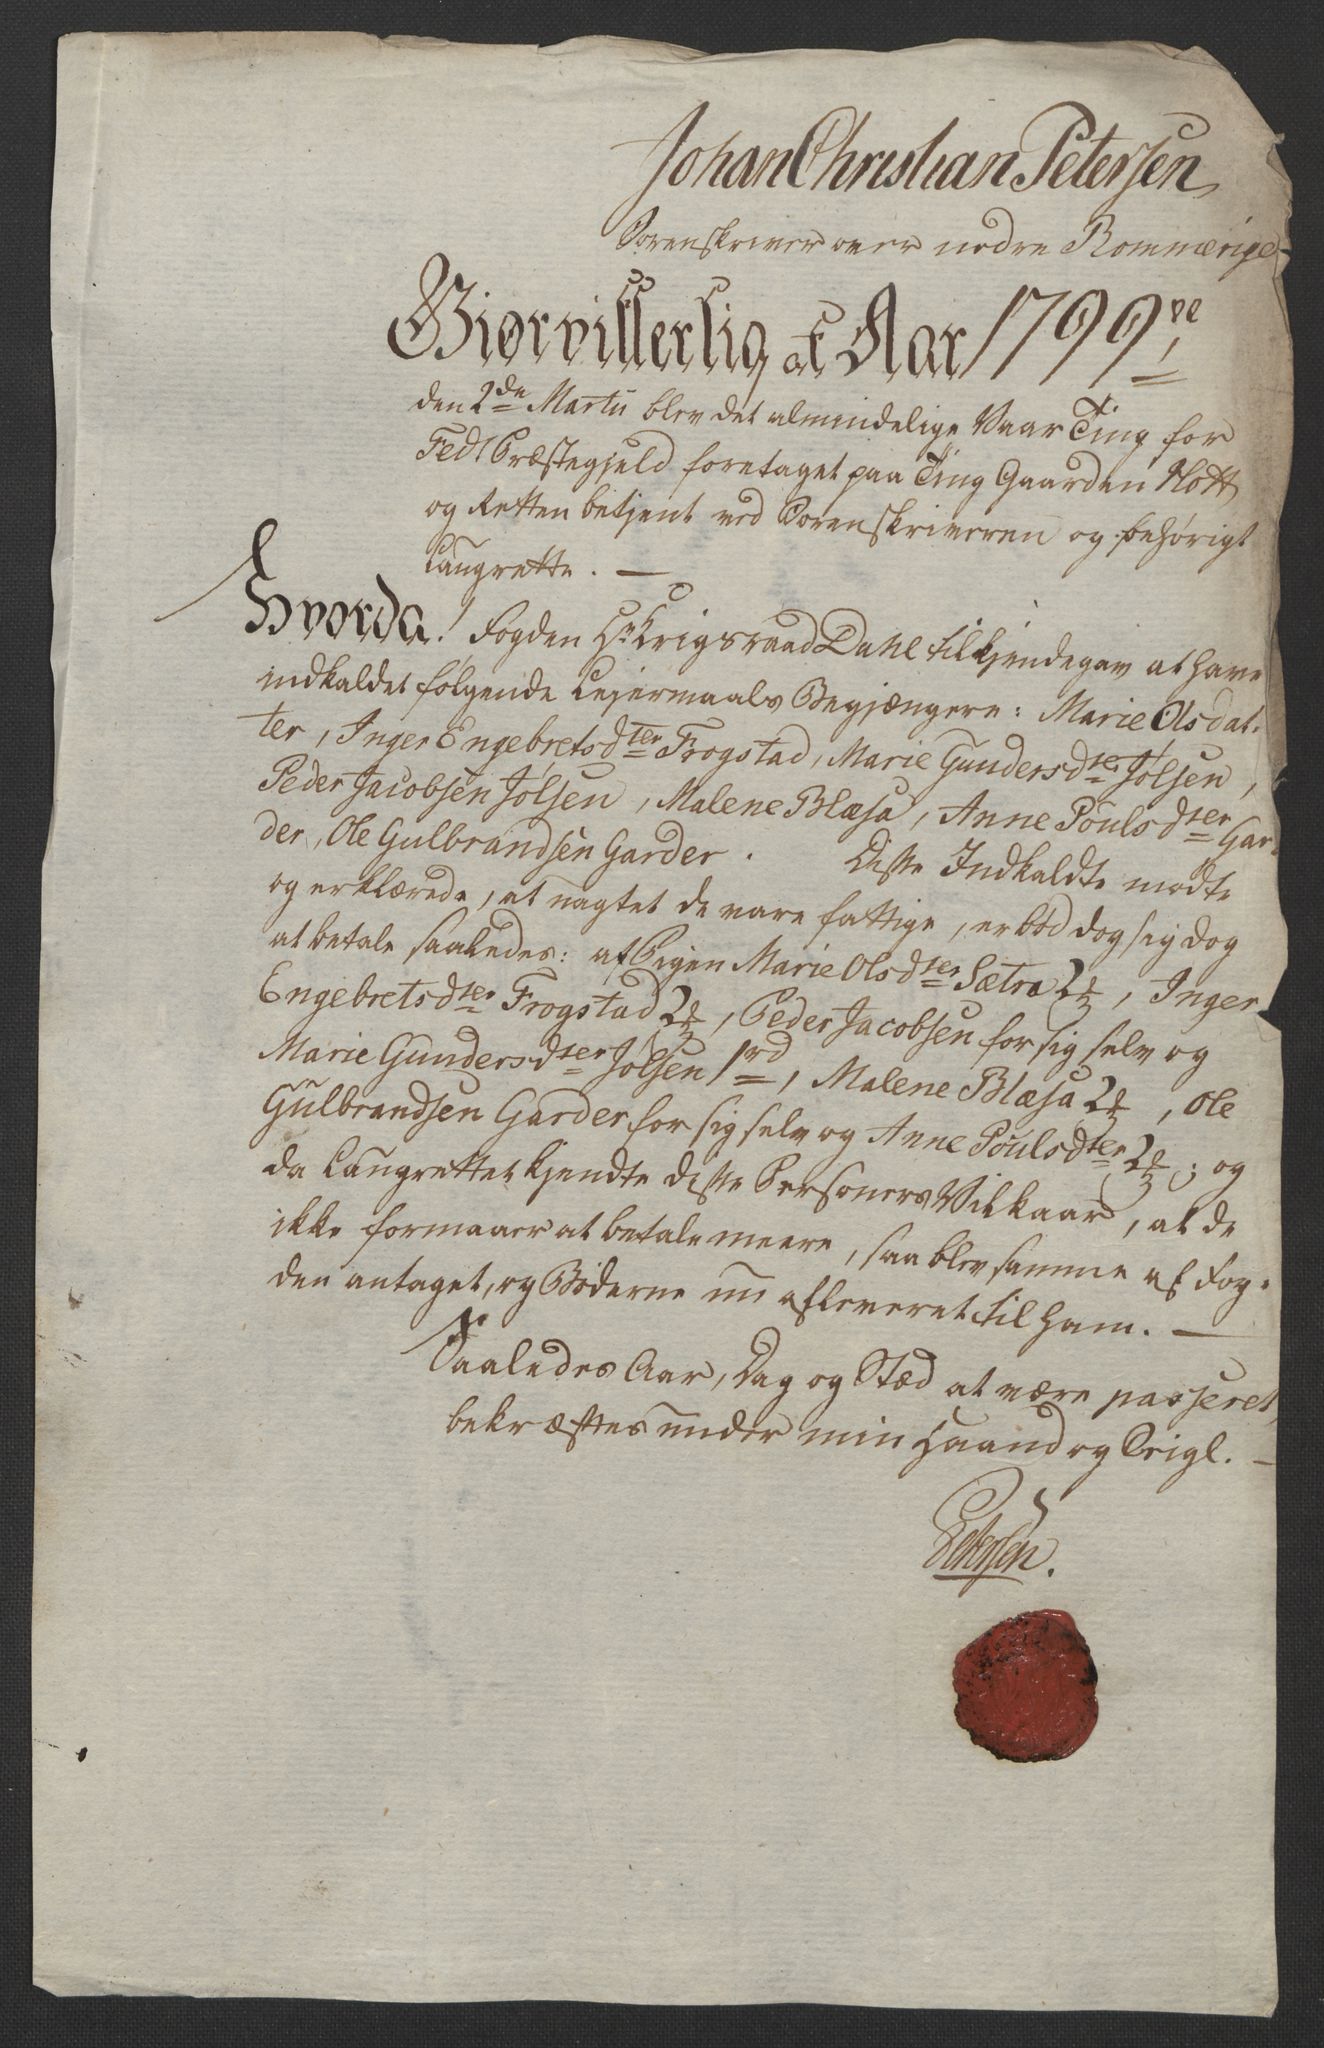 Johan Christian Petersen
Sorenskriver over nedre Rommerige
Giør vitterlig at Aar 1799ve,
den 2de Martii blev det almindelige Vaar Ting for
Fedt Præstegjeld foretaget paa Ting Gaarden
og Retten betjent ved Sorenskriveren og behørigt
Laugrette. —
Hvorda! Fogden Hr Krigsraad Dahl tilkjendegav at have
indkaldet følgende Lejermaals Begjængere: Marie Olsdat-
ter, Inger Engebretsdter Frogstad, Marie Gundersdter Jølsen,
Peder Jacobsen Jølsen, Malene Blæsa, Anne Poulsdter Gar-
der, Ole Gulbrandsen Garder. Disse Indkaldte mødte
og erklærede, at uagtet de vare fattige, erbød dog sig dog
at betale saaledes: af Pigen Marie Olsdter Sætra 2 , Inger
Engebretsdter Frogstad 2 , Peder Jacobsen for sig selv og
Marie Gundersdter Jølsen 1 rd, Malene Blæsa 2 , Ole
Gulbrandsen Garder for sig selv og Anne Poulsdter 2 ; og
da Laugrettet kjendte disse Personers Vilkaar, at de
ikke formaaer at betale meere, saa blev samme af Fog-
den antaget, og Bøderne nu afleveret til ham. —
Saaledes Aar, Dag og Stæd at være passeret,
bekræftes under min Haand og Seigl. —
Petersen.